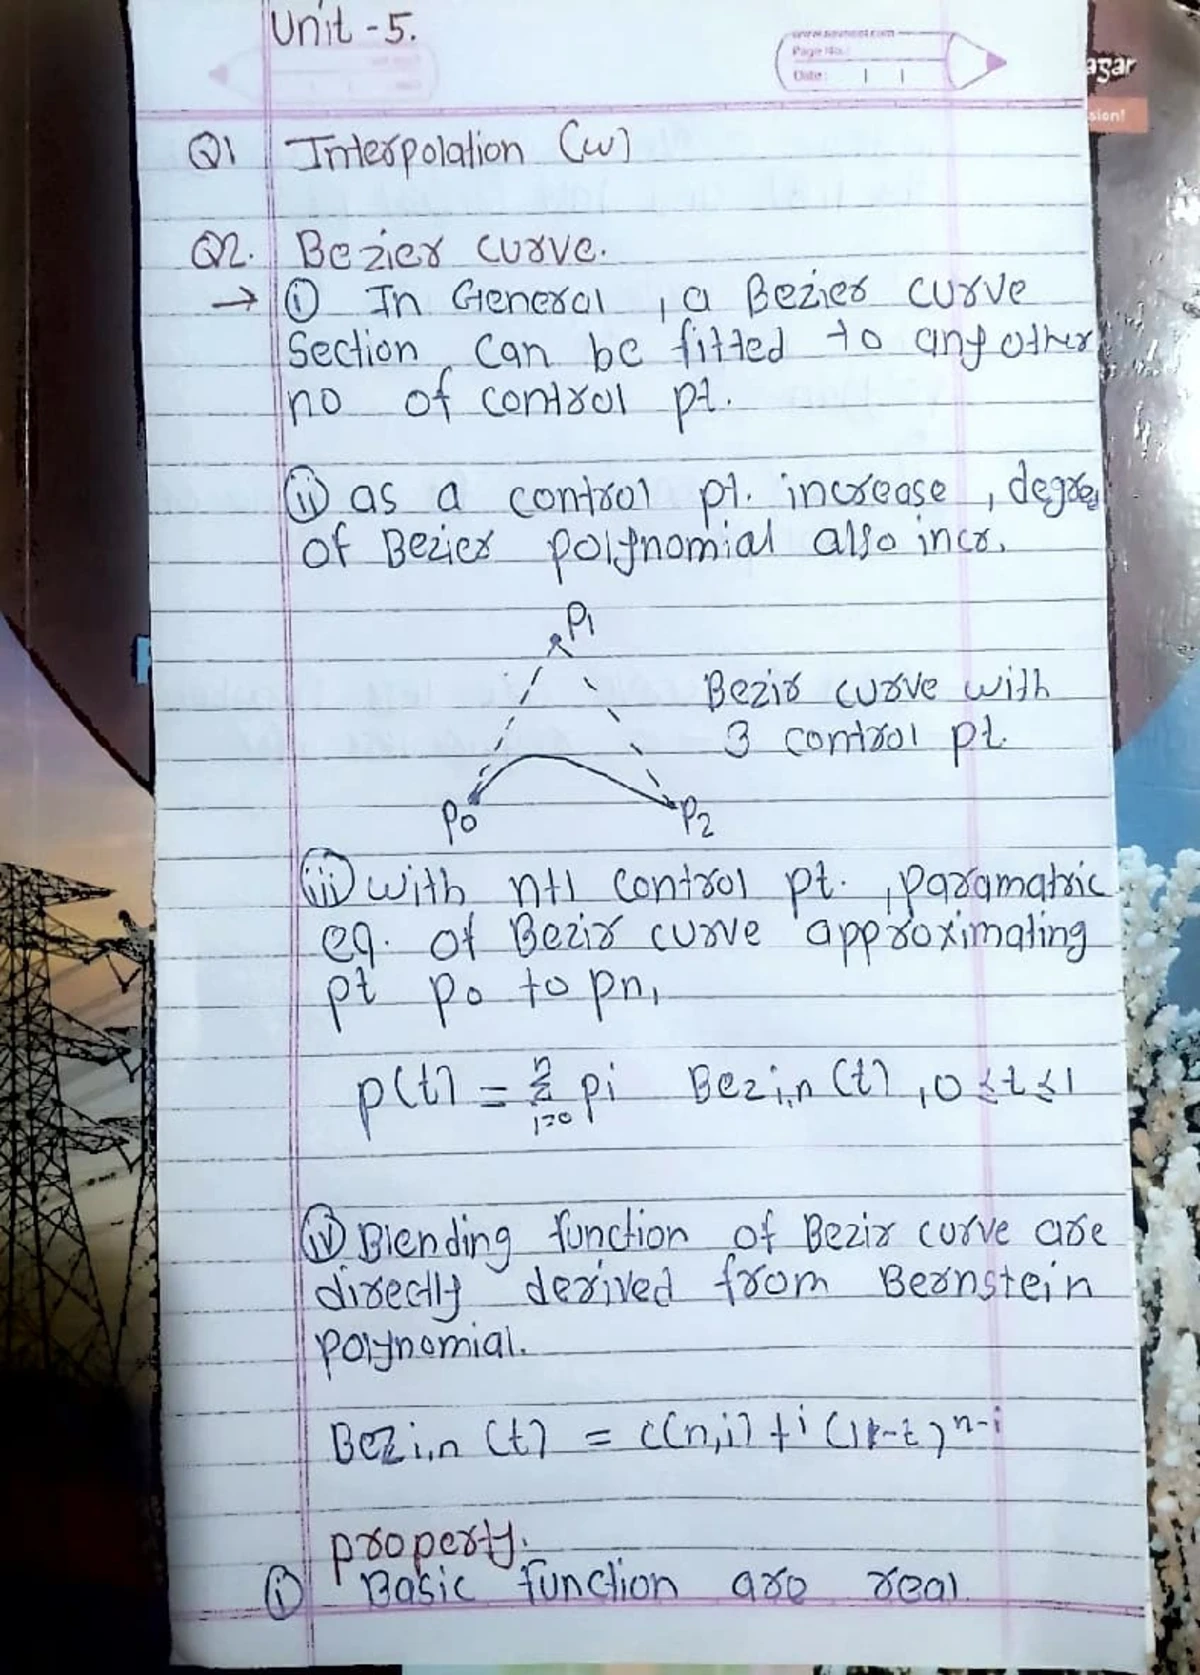 Unit - 5.
Page No.:
Date:
agar
sion!
Q1 Interpolation (w)
Q2. Bezier curve.
→ (i) In General, a Bezier curve
Section can be fitted to any other
no of control pt.
(ii) as a control pt. increase, degree
of Bezier polynomial also incr.
P1
Bezir curve with
3 control pt.
P0 P2
(iii) with n+1 control pt., paramatric
eq. of Bezir curve approximating
pt P0 to pn,
p(t) = n Σ i=0 pi Bezi,n (t), 0 ≤ t ≤ 1
(iv) Blending function of Bezir curve are
directly derived from Bernstein
polynomial.
Bezi,n (t) = c(n,i) t^i (1-t)^n-i
property.
(i) Basic function are real